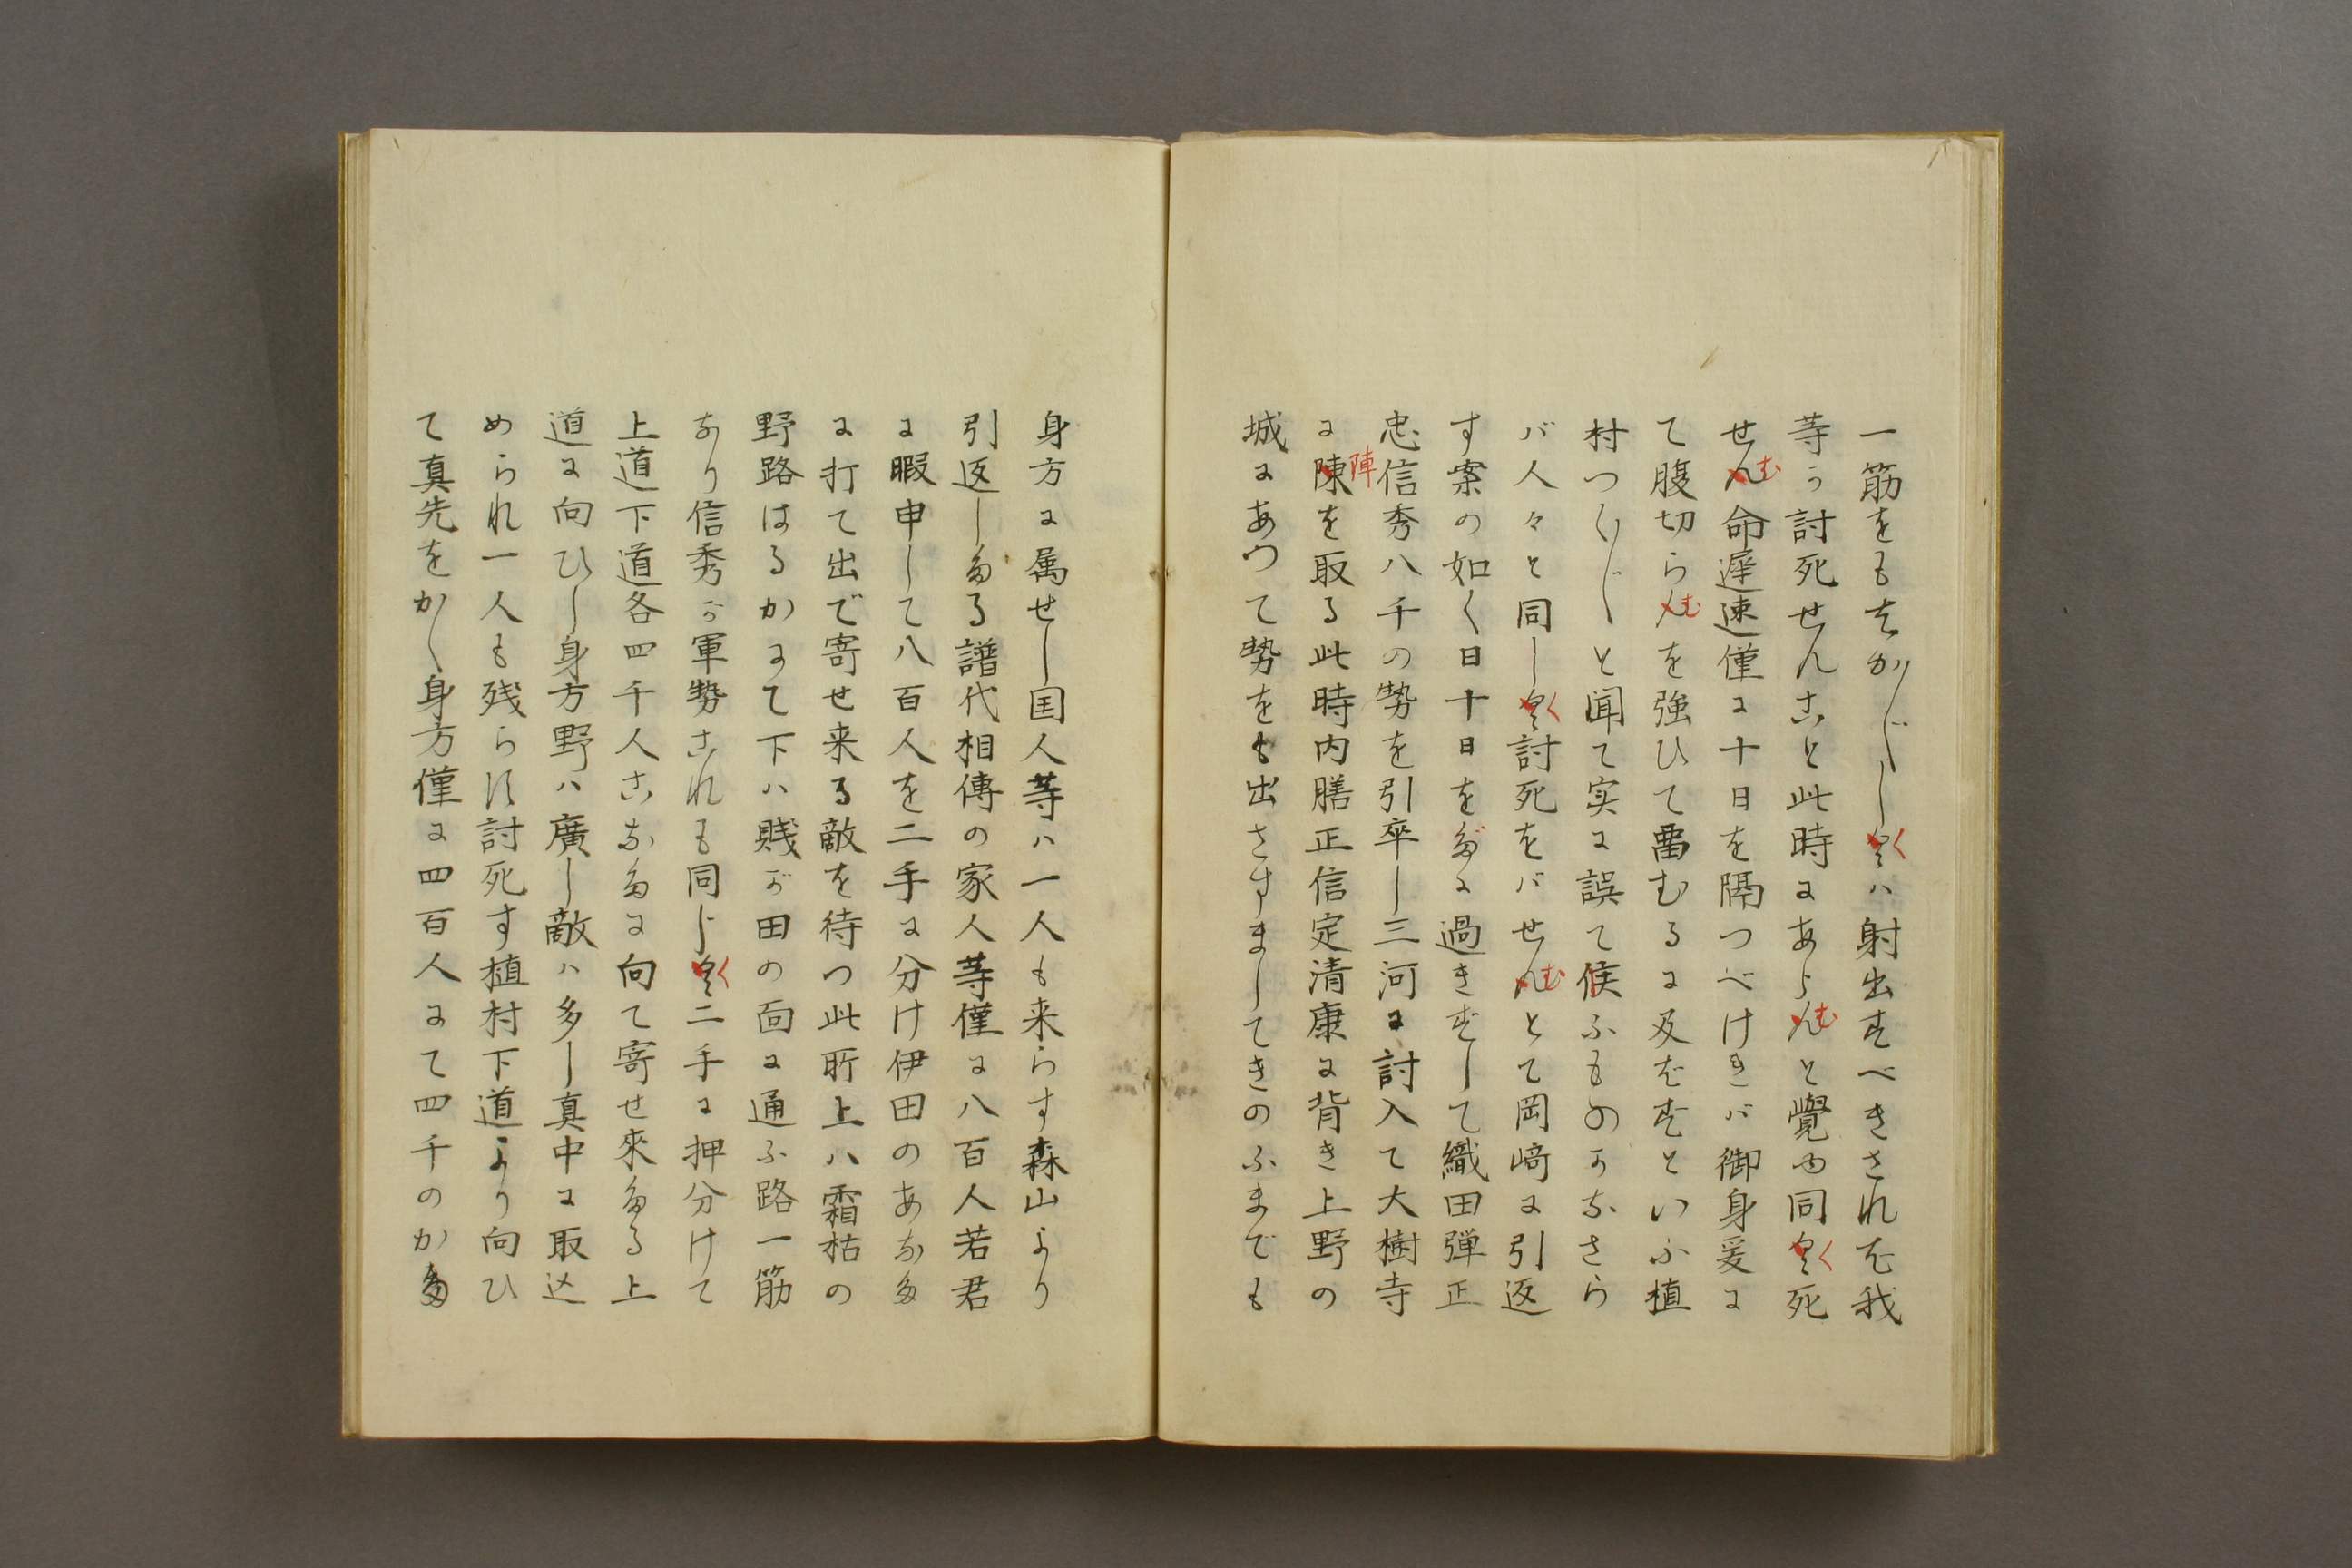 一筋をもはか〴〵しくハ射出すべきされを我
等か討死せんこと此時にあらむと覺ゆ同く死
せむ命遅速僅に十日を隔つべけきバ御身爰に
て腹切らむを強ひて畱むるに及をずといふ植
村つく〴〵と聞て実に誤て候ふものかなさら
バ人々と同しく討死をバせむとて岡﨑に引返
す案の如く日十日をだに過きずして織田弾正
忠信秀八千の勢を引卒し三河に討入て大樹寺
に陣を取る此時内膳正信定清康に背き上野の
城にあつて勢をも出さすましてきのふまでも
身方に属せし国人等ハ一人も来らす森山より
引返したる譜代相傳の家人等僅に八百人若君
に暇申して八百人を二手に分け伊田のあなた
に打て出で寄せ来る敵を待つ此所上ハ霜枯の
野路はるかにて下ハ賎が田の面に通ふ路一筋
あり信秀が軍勢これも同じく二手に押分けて
上道下道各四千人こなたに向て寄せ來たる上
道に向ひし身方野ハ廣し敵ハ多し真中に取込
められ一人も残らす討死す植村下道より向ひ
て真先をかく身方僅に四百人にて四千のかた